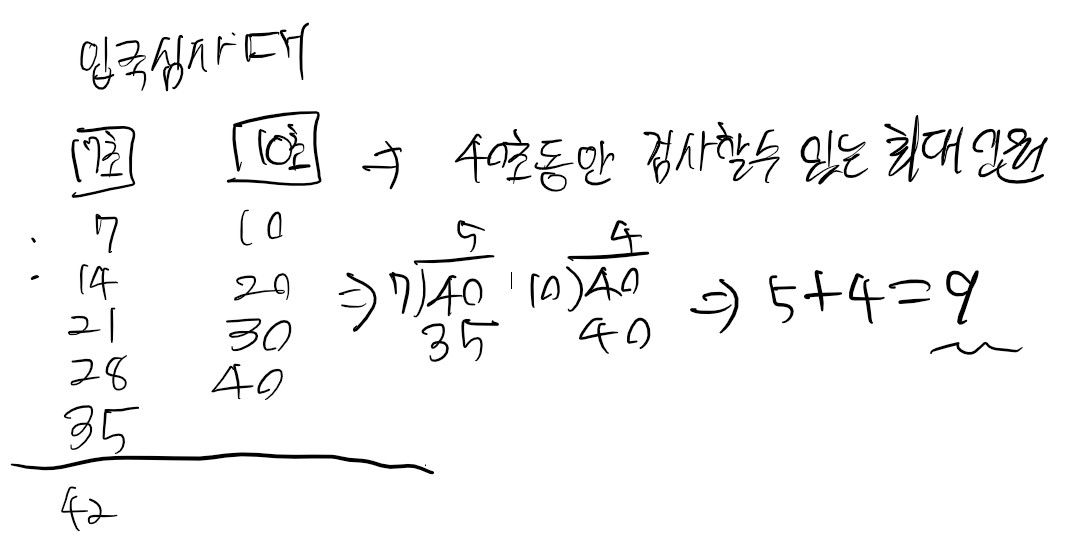 입국심사대
7초 10초 ⇒ 40초동안 검사할수 있는 최대 인원
7 10
5 4
: 14 20 ⇒ 7)40 10)40 ⇒ 5+4=9
21 30 35 40
28 40
35
42